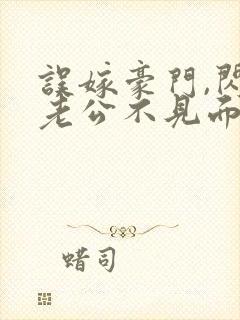 誤嫁豪門,閃
老公不見面
蜡司